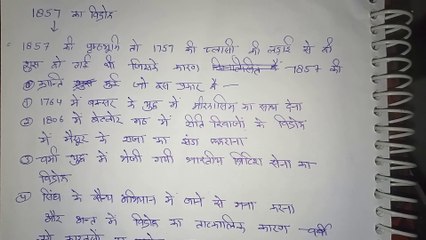 1857 का विद्रोह
↓
1857 की पृष्ठभूमि तो 1757 की प्लासी की लड़ाई से ही
शुरू हो गई थी जिसके कारण 1857 की
क्रान्ति हुई जो इस प्रकार है —
① 1764 में बक्सर के युद्ध में मीरकासिम का साथ देना
② 1806 में वेल्लोर मठ में रीति रिवाजो के विद्रोह
में मैसूर के राजा का झंडा फहराना
③ वर्मा युद्ध में भेजी गयी भारतीय ब्रिटिश सेना का
विद्रोह
④ सिंध के सैन्य अभियान में जाने से मना करना
और अन्त में विद्रोह का तात्कालिक कारण